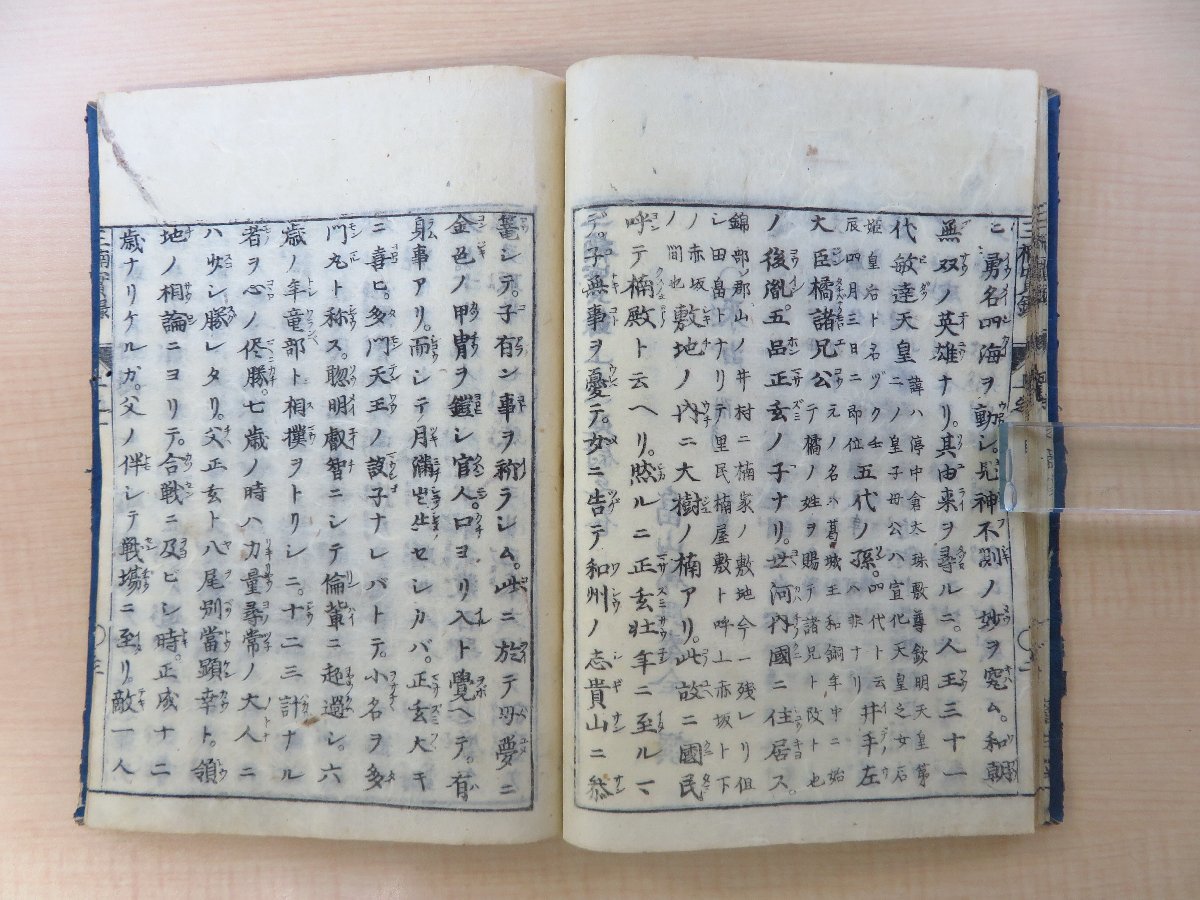 ニ勇名四海ヲ動シ。鬼神不測ノ妙ヲ究ム。和朝
無双ノ英雄ナリ。其由来ヲ尋ルニ。人王三十一
代敏達天皇 諱ハ渟中倉太珠敷尊欽明天皇第二ノ皇子母公ハ宣化天皇之女石
姫皇后ト名ヅク壬辰四月三日ニ即位 五代ノ孫。四代ト云ハ非ナリ 井手左
大臣橘諸兄公 元ノ名ハ葛城王和銅年中ニ始テ橘ノ姓ヲ賜テ諸兄ト改ト也
ノ後胤。五品正玄ノ子ナリ。世河内國ニ住居ス。
錦部郡山ノ井村ニ楠家ノ敷地今ニ残レリ但シ田畠トナリテ里民楠屋敷ト呼上赤坂ト下
ノ赤坂ノ間也 敷地ノ内ニ大樹ノ楠アリ。此故ニ國民
呼テ楠殿ト云ヘリ。然ルニ正玄壮年ニ至ルマ
デ。子無事ヲ憂テ。女ニ告テ和州ノ志貴山ニ参
篭シテ。子有ン事ヲ祈ラシム。此ニ於テ母夢ニ
金色ノ甲冑ヲ鎧シ官人。口ヨリ入ト覺ヘテ。有
身事アリ。而シテ月満出生セシカバ。正玄大キ
ニ喜ビ。多門天王ノ設子ナレバトテ。小名ヲ多
門丸ト称ス。聰明叡智ニシテ倫輩ニ起過シ。六
歳ノ年竜部ト相撲ヲトリシニ。十二三計ナル
者ヲ心ノ侭勝。七歳ノ時ハ力量尋常ノ大人ニ
ハ少シ勝レタリ。父正玄ト八尾別當顕幸ト。領
地ノ相論ニヨリテ。合戦ニ及ビシ時。正成十二
歳ナリケルガ。父ノ伴シテ戦場ニ至リ。敵一人